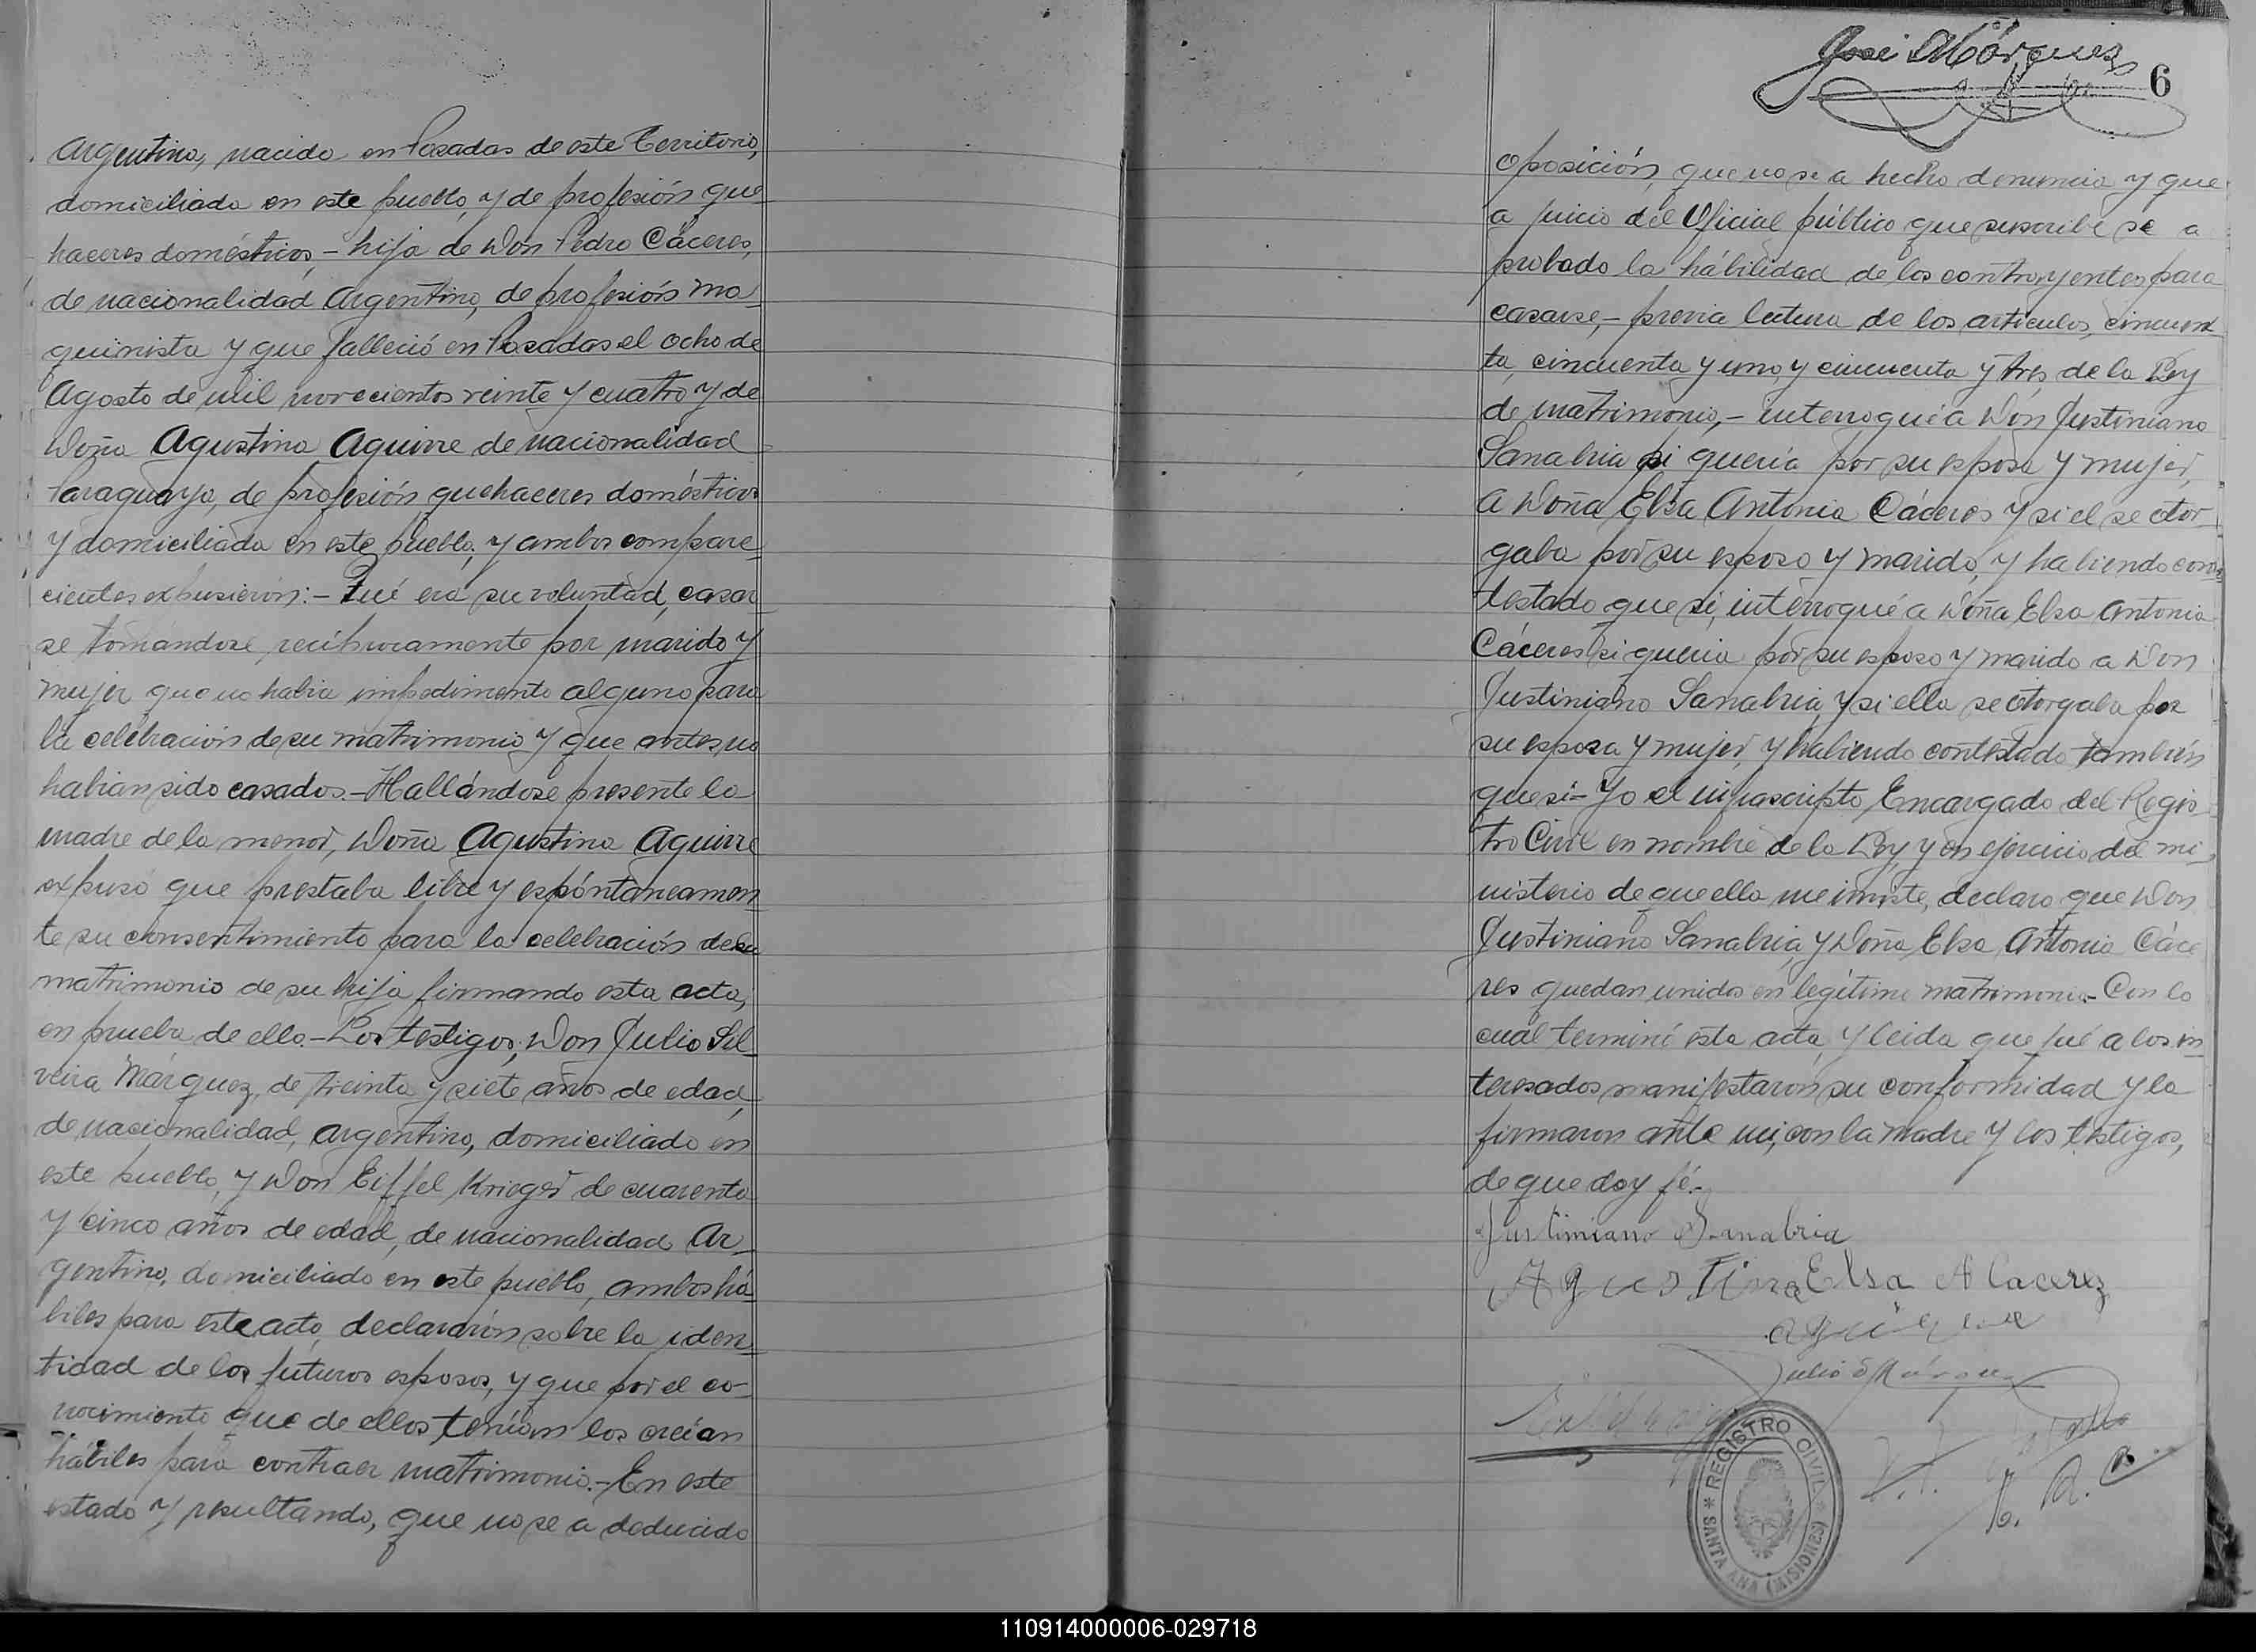 Argentina, nacida en Posadas de este Territorio,
domiciliada en este pueblo, y de profesión que
haceres domésticos,- hija de Don Pedro Cáceres,
de nacionalidad Argentino, de profesión ma
quinista y que falleció en Posadas el ocho de
Agosto de mil novecientos veinte y cuatro y de
Doña Agustina Aguirre de nacionalidad
Paraguaya, de profesión quehaceres domésticos
y domiciliada en este pueblo; y ambos compare
cientes expusieron:- Qué era su voluntad, casar
se tomándose recíprocamente por marido y
mujer que no habia impedimento alguno para
la celebración de su matrimonio y que antes no
habian sido casados.- Hallándose presente la
madre de la menor, Doña Agustina Aguirre
expuso que prestaba libre y espóntáneamen
te su consentimiento para la celebración de su
matrimonio de su hija firmando esta acta,
en prueba de ello.- Los testigos, Don Julio Sil
veira Márquez, de treinta y siete años de edad,
de nacionalidad, argentino, domiciliado en
este pueblo, y Don Eiffel Krieger de cuarenta
y cinco años de edad, de nacionalidad Ar-
gentino, domiciliado en este pueblo, ambos há
biles para este acto, declararón sobre la iden
tidad de los futuros esposos, y que por el co-
nocimiento que de ellos tenían los creían
hábiles para contraer matrimonio.- En este
estado y resultando, que no se a deducido
José Márquez
6
oposición, que no se a hecho denuncia y que
a juicio del Oficial público que suscribe se a
probado la hábilidad de los contrayentes para
casarse,- previa lectura de los artículos, cincuen
ta, cincuenta y uno, y cincuenta y tres de la Ley
de matrimonio,- interrogué a Don Justiniano
Sanabria si quería por su esposa y mujer,
a Doña Elsa Antonia Cáceres y si el se otor
gaba por su esposo y marido, y habiendo con
testado que sí, intérrogué a Doña Elsa Antonia
Cáceres si queria por su esposo y marido a Don
Justiniano Sanabria, y si ella se otorgaba por
su esposa y mujer, y habiendo contestado también
que si- Yo el infrascripto, Encargado del Regis
tro Civil en nombre de la Ley y en ejercicio del mi
nisterio de que ella me inviste, declaro que Don
Justiniano Sanabria, y Doña Elsa Antonia Cáce
res quedan unidos en legítimo matrimonio.- Con lo
cual terminó esta acta, y leida que fué a los in
teresados manifestaron su conformidad y la
firmaron ante mi, con la madre y los testigos,
de que doy fé.-
Justiniano Sanabria
Agustina Elsa A Cacerez
Julio S Márquez
REGISTRO CIVIL
SANTA ANA (MISIONES)
110914000006-029718